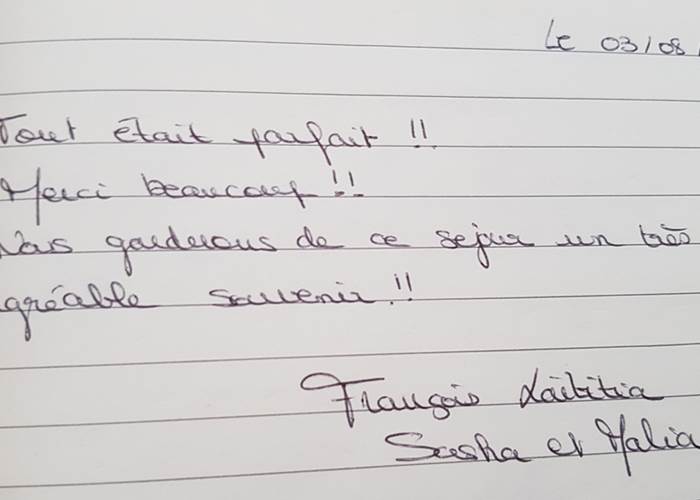 Le 03/08
Tout était parfait !!
Merci beaucoup !!
Nous garderons de ce sejour un très
agréable souvenir !!
François Laëtitia
Sasha et Malia